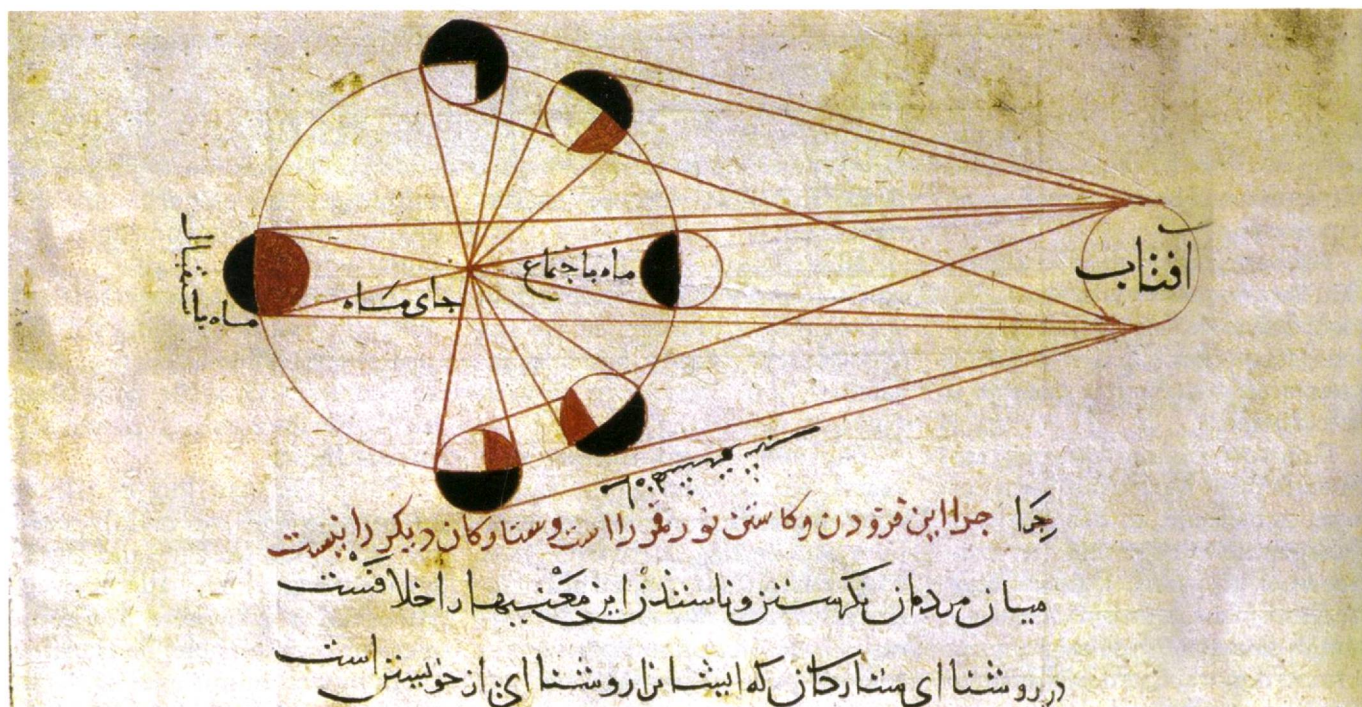 آفتاب
ماه باجتماع
جای مَاه
ماه باستقبال
چرا این فزودن و کاستن نور قمر را است و ستارکان دیکر را نیست
میان مردمان نکرستن و ناسنندن این مَعْنیها را خلافست
در روشنا ای ستارکان که ایشانرا روشنا ای از خویشتن است